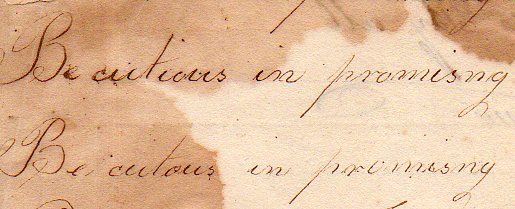 Be cutious in promisng
Be icutous in promisng